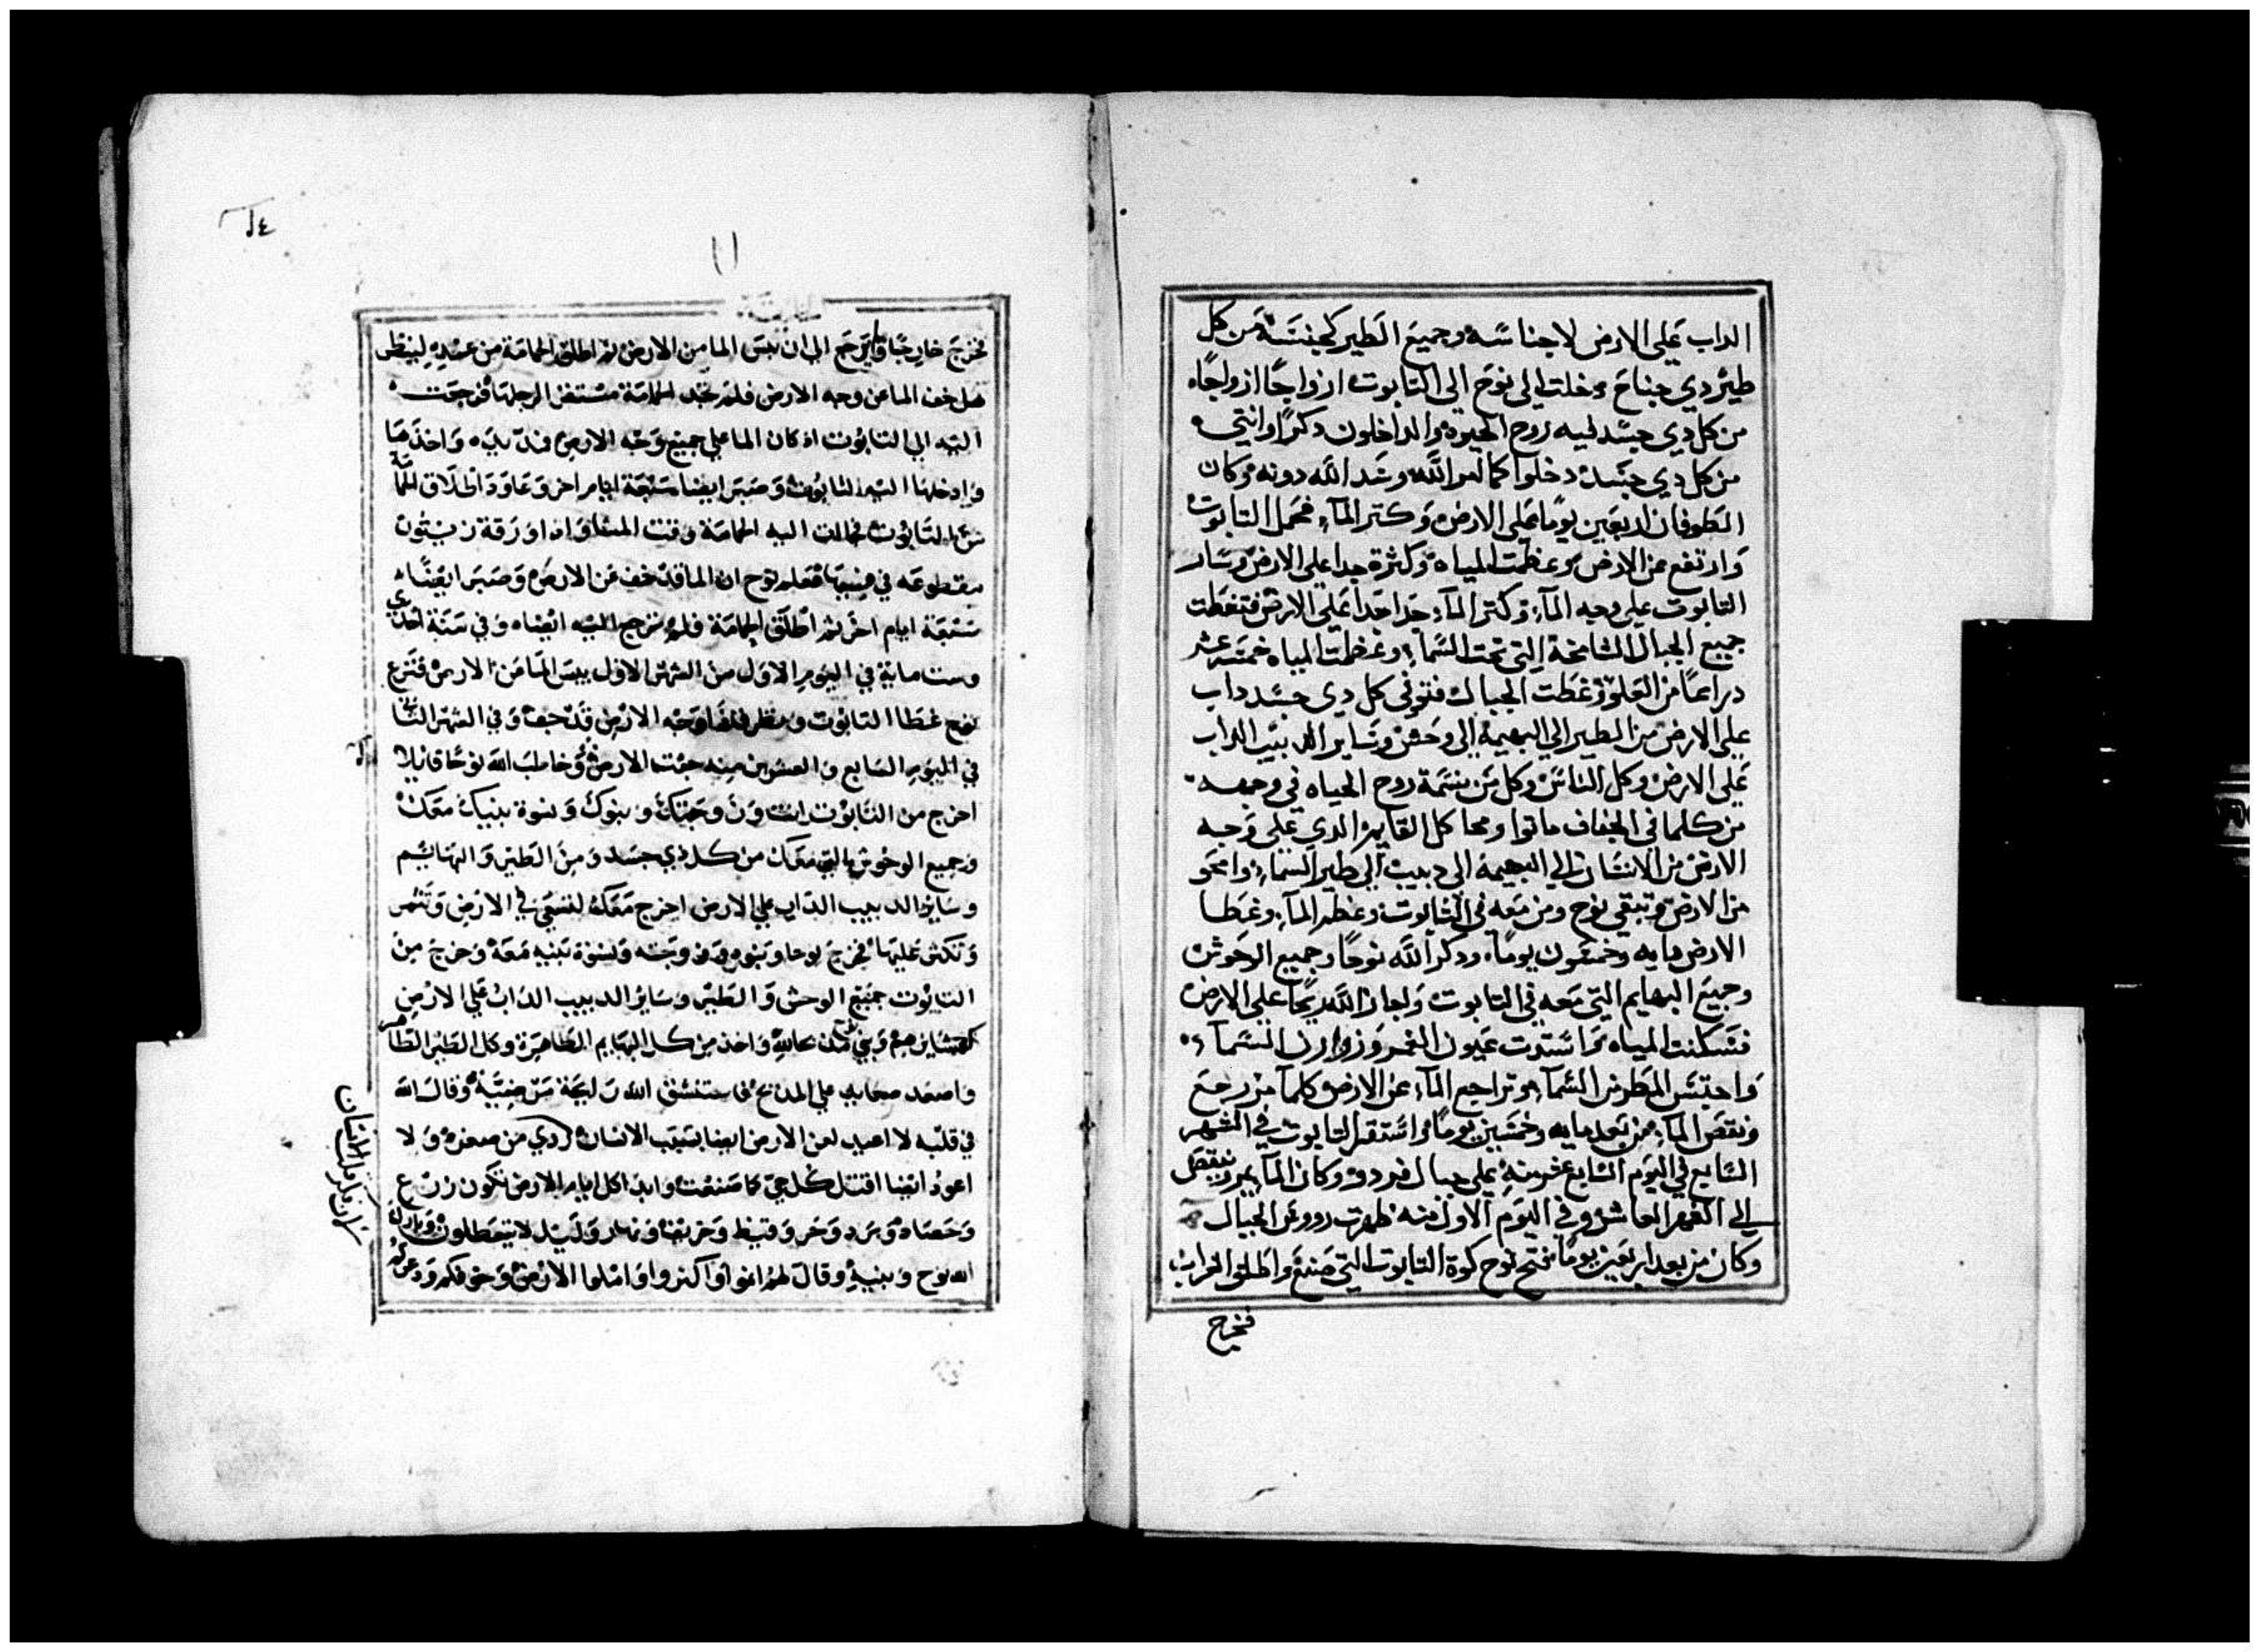 الداب على الارض لاجناسه وجميع الطير لجنسه من كل
طير دي جناح دخلت الى نوح الى التابوت ازواجًا ازواجًا
من كل دي جسد فيه روح الحيوه والداخلون دكرًا وانتي
من كل دي جسد دخلوا كما امر الله وشد الله دونه وكان
الطوفان اربعين يومًا على الارض وكتر الماء فحمل التابوت
وارتفع عن الارض وعظمت المياه وكثرة جدا على الارض وسار
التابوت على وجه الماء وكتر الماء جدا جدا على الارض فتغطت
جميع الجبال الشامخة التي تحت السماء وعظمت المياه خمسه عشر
دراعًا من العلو وغطت الجبال فتوفي كل دي جسد داب
على الارض من الطير الي البهيمة الى وحش وساير الدبيب الداب
على الارض وكل الناس وكل من نسمة روح الحياه في وجهه
من كلما في الجفاف ماتوا ومحا كل القايم الدي على وجه
الارض من الانسان الي البهيمة الى دبيب الى طير السماء وامحو
من الارض وتبقي نوح ومن معه في التابوت وعظم الماء وغطا
الارض مايه وخمسون يومًا ودكر الله نوحًا وجميع الوحوش
وجميع البهايم التي معه في التابوت واجاز الله ريحًا على الارض
فسكنت المياه واستدت عيون الغمر وزوازن السماء
واحتبس المطر من السماء وتراجع الماء عن الارض كلما مر رجع
ونقص الماء من بعد مايه وخمسين يومًا واستقر التابوت في الشهر
السابع في اليوم السابع عشر منه على جبال قردو وكان الماء يمر وينقص
الي الشهر العاشر وفي اليوم الاول منه ظهرت رووس الجبال
وكان من بعد اربعين يومًا فتح نوح كوة التابوت التي صنع واطلق الغراب
فخرج
١١
فخرج خارجًا وراجع الى ان يبس الما من الارض ثم اطلق الحمامة من عنده لينظر
هل خف الما عن وجه الارض فلم تجد الحمامة مستقر لرجلها فرجعت
اليه الي التابوت اذ كان الما على جميع وجه الارض فمد يده واخذها
وادخلها اليه التابوت وصبر ايضا سبعة ايام اخر وعاود اطلاق الحمامة
من التابوت فجات اليه الحمامة وقت المسا واذا ورقة زيتون
مقطوعه في فيها فعلم نوح ان الما قد خف عن الارض وصبر ايضًا
سبعة ايام اخر ثم اطلق الحمامة فلم ترجع اليه ايضا وفي سنة احدي
وست ماية في اليوم الاول من الشهر الاول يبس الما من الارض فنزع
نوح غطا التابوت ونظر فاذا وجه الارض قد جف وفي الشهر الثاني
في اليوم السابع والعشرين منه جفت الارض وخاطب الله نوحًا قايلا
اخرج من التابوت انت وزوجتك وبنوك ونسوة بنيك معك
وجميع الوحوش التي معك من كل ذي جسد ومن الطير والبهايم
وساير الدبيب الداب علي الارض اخرج معك لتسعي في الارض وتثمر
وتكثر عليها فخرج نوحا وبنوه وزوجته ونسوة بنيه معه وخرج من
التابوت جميع الوحش والطير وساير الدبيب الداب علي الارض
لعشايرهم وبني نوح مذبحا لله واخذ من كل البهايم الطاهرة وكل الطير الطاهر
واصعد صعايد علي المذبح فاستنشق الله رايحة مرضية وقال الله
في قلبه لا اعيد لعن الارض ايضا بسبب الانسان ردي من صغره ولا
اعود ايضا اقتل كل حي كما صنعت وابدا كل ايام الارض تكون زرع
وحصاد وبرد وحر وقيظ وخريف ونهار وليل لا يتعطلون وبارك
الله نوح وبنيه وقال لهم انموا واكثروا واملوا الارض وخوفكم وذعركم
لان فكر قلب الانسان